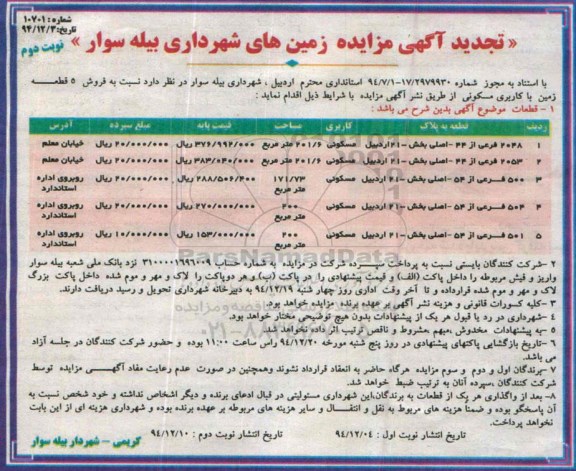 شماره: ۱۰۷۰۱
تاریخ: ۹۴/۱۲/۳
« تجدید آگهی مزایده زمین های شهرداری بیله سوار »
نوبت دوم
با استناد به مجوز شماره ۹۴/۷/۱-۱۷/۲۹۷۹۹۳۰ استانداری محترم اردبیل ، شهرداری بیله سوار در نظر دارد نسبت به فروش ۵ قطعه
زمین با کاربری مسکونی از طریق نشر آگهی مزایده با شرایط ذیل اقدام نماید :
۱ - قطعات موضوع آگهی بدین شرح می باشد :
ردیف قطعه به پلاک کاربری مساحت قیمت پایه مبلغ سپرده آدرس
۱ ۲۰۴۸ فرعی از ۴۴ -اصلی بخش -۲۱ اردبیل مسکونی ۲۰۱/۶ متر مربع ۳۷۶/۹۹۲/۰۰۰ ریال ۲۰/۰۰۰/۰۰۰ ریال خیابان معلم
۲ ۲۰۵۳ فرعی از ۴۴ -اصلی بخش -۲۱ اردبیل مسکونی ۲۰۱/۶ متر مربع ۳۸۳/۰۴۰/۰۰۰ ریال ۲۰/۰۰۰/۰۰۰ ریال خیابان معلم
۳ ۵۰۰ فرعی از ۵۴ -اصلی بخش -۲۱ اردبیل مسکونی ۱۷۱/۷۳ متر مربع ۲۸۸/۵۰۶/۴۰۰ ریال ۲۰/۰۰۰/۰۰۰ ریال روبروی اداره استاندارد
۴ ۵۰۴ فرعی از ۵۴ -اصلی بخش -۲۱ اردبیل مسکونی ۲۰۰ متر مربع ۲۷۰/۰۰۰/۰۰۰ ریال ۲۰/۰۰۰/۰۰۰ ریال روبروی اداره استاندارد
۵ ۵۰۱ فرعی از ۵۴ -اصلی بخش -۲۱ اردبیل مسکونی ۲۰۰ متر مربع ۱۵۳/۰۰۰/۰۰۰ ریال ۱۰/۰۰۰/۰۰۰ ریال روبروی اداره استاندارد
۲ -شرکت کنندگان بایستی نسبت به پرداخت سپرده شرکت در مزایده به شماره حساب ۳۱۰۰۰۰۱۶۹۶۰۰۹ نزد بانک ملی شعبه بیله سوار
واریز و فیش مربوطه را داخل پاکت (الف) و قیمت پیشنهادی را در پاکت (ب) و هر دوپاکت را لاک و مهر و موم شده داخل پاکت بزرگ
لاک و مهر و موم شده قرارداده و تا آخر وقت اداری روز چهار شنبه ۹۴/۱۲/۱۹ به دبیرخانه شهرداری تحویل و رسید دریافت دارند.
۳ -کلیه کسورات قانونی و هزینه نشر آگهی بر عهده برنده مزایده خواهد بود.
۴ -شهرداری در رد یا قبول هر یک از پیشنهادات بدون هیچ توضیحی مختار خواهد بود.
۵ -به پیشنهادات مخدوش ،مبهم ،مشروط و ناقص ترتیب اثر داده نخواهد شد.
۶ -تاریخ بازگشایی پاکتهای پیشنهادی در روز پنج شنبه مورخه ۹۴/۱۲/۲۰ راس ساعت ۱۱:۰۰ بوده و حضور شرکت کنندگان در جلسه آزاد
می باشد.
۷ -برندگان اول و دوم و سوم مزایده هرگاه حاضر به انعقاد قرارداد نشوند وهمچنین در صورت عدم رعایت مفاد آگهی مزایده توسط
شرکت کنندگان ،سپرده آنان به ترتیب ضبط خواهد شد.
۸- بعد از واگذاری هر یک از قطعات به برندگان،این شهرداری مسئولیتی در قبال ادعای برنده و دیگر اشخاص نداشته و خود شخص نسبت به
آن پاسخگو بوده و ضمناً هزینه های مربوط به نقل و انتقال و سایر هزینه های مربوطه بر عهده برنده بوده و شهرداری هزینه ای از این بابت
نخواهد پرداخت.
تاریخ انتشار نوبت اول : ۹۴/۱۲/۰۴ تاریخ انتشار نوبت دوم : ۹۴/۱۲/۱۰
کریمی - شهردار بیله سوار